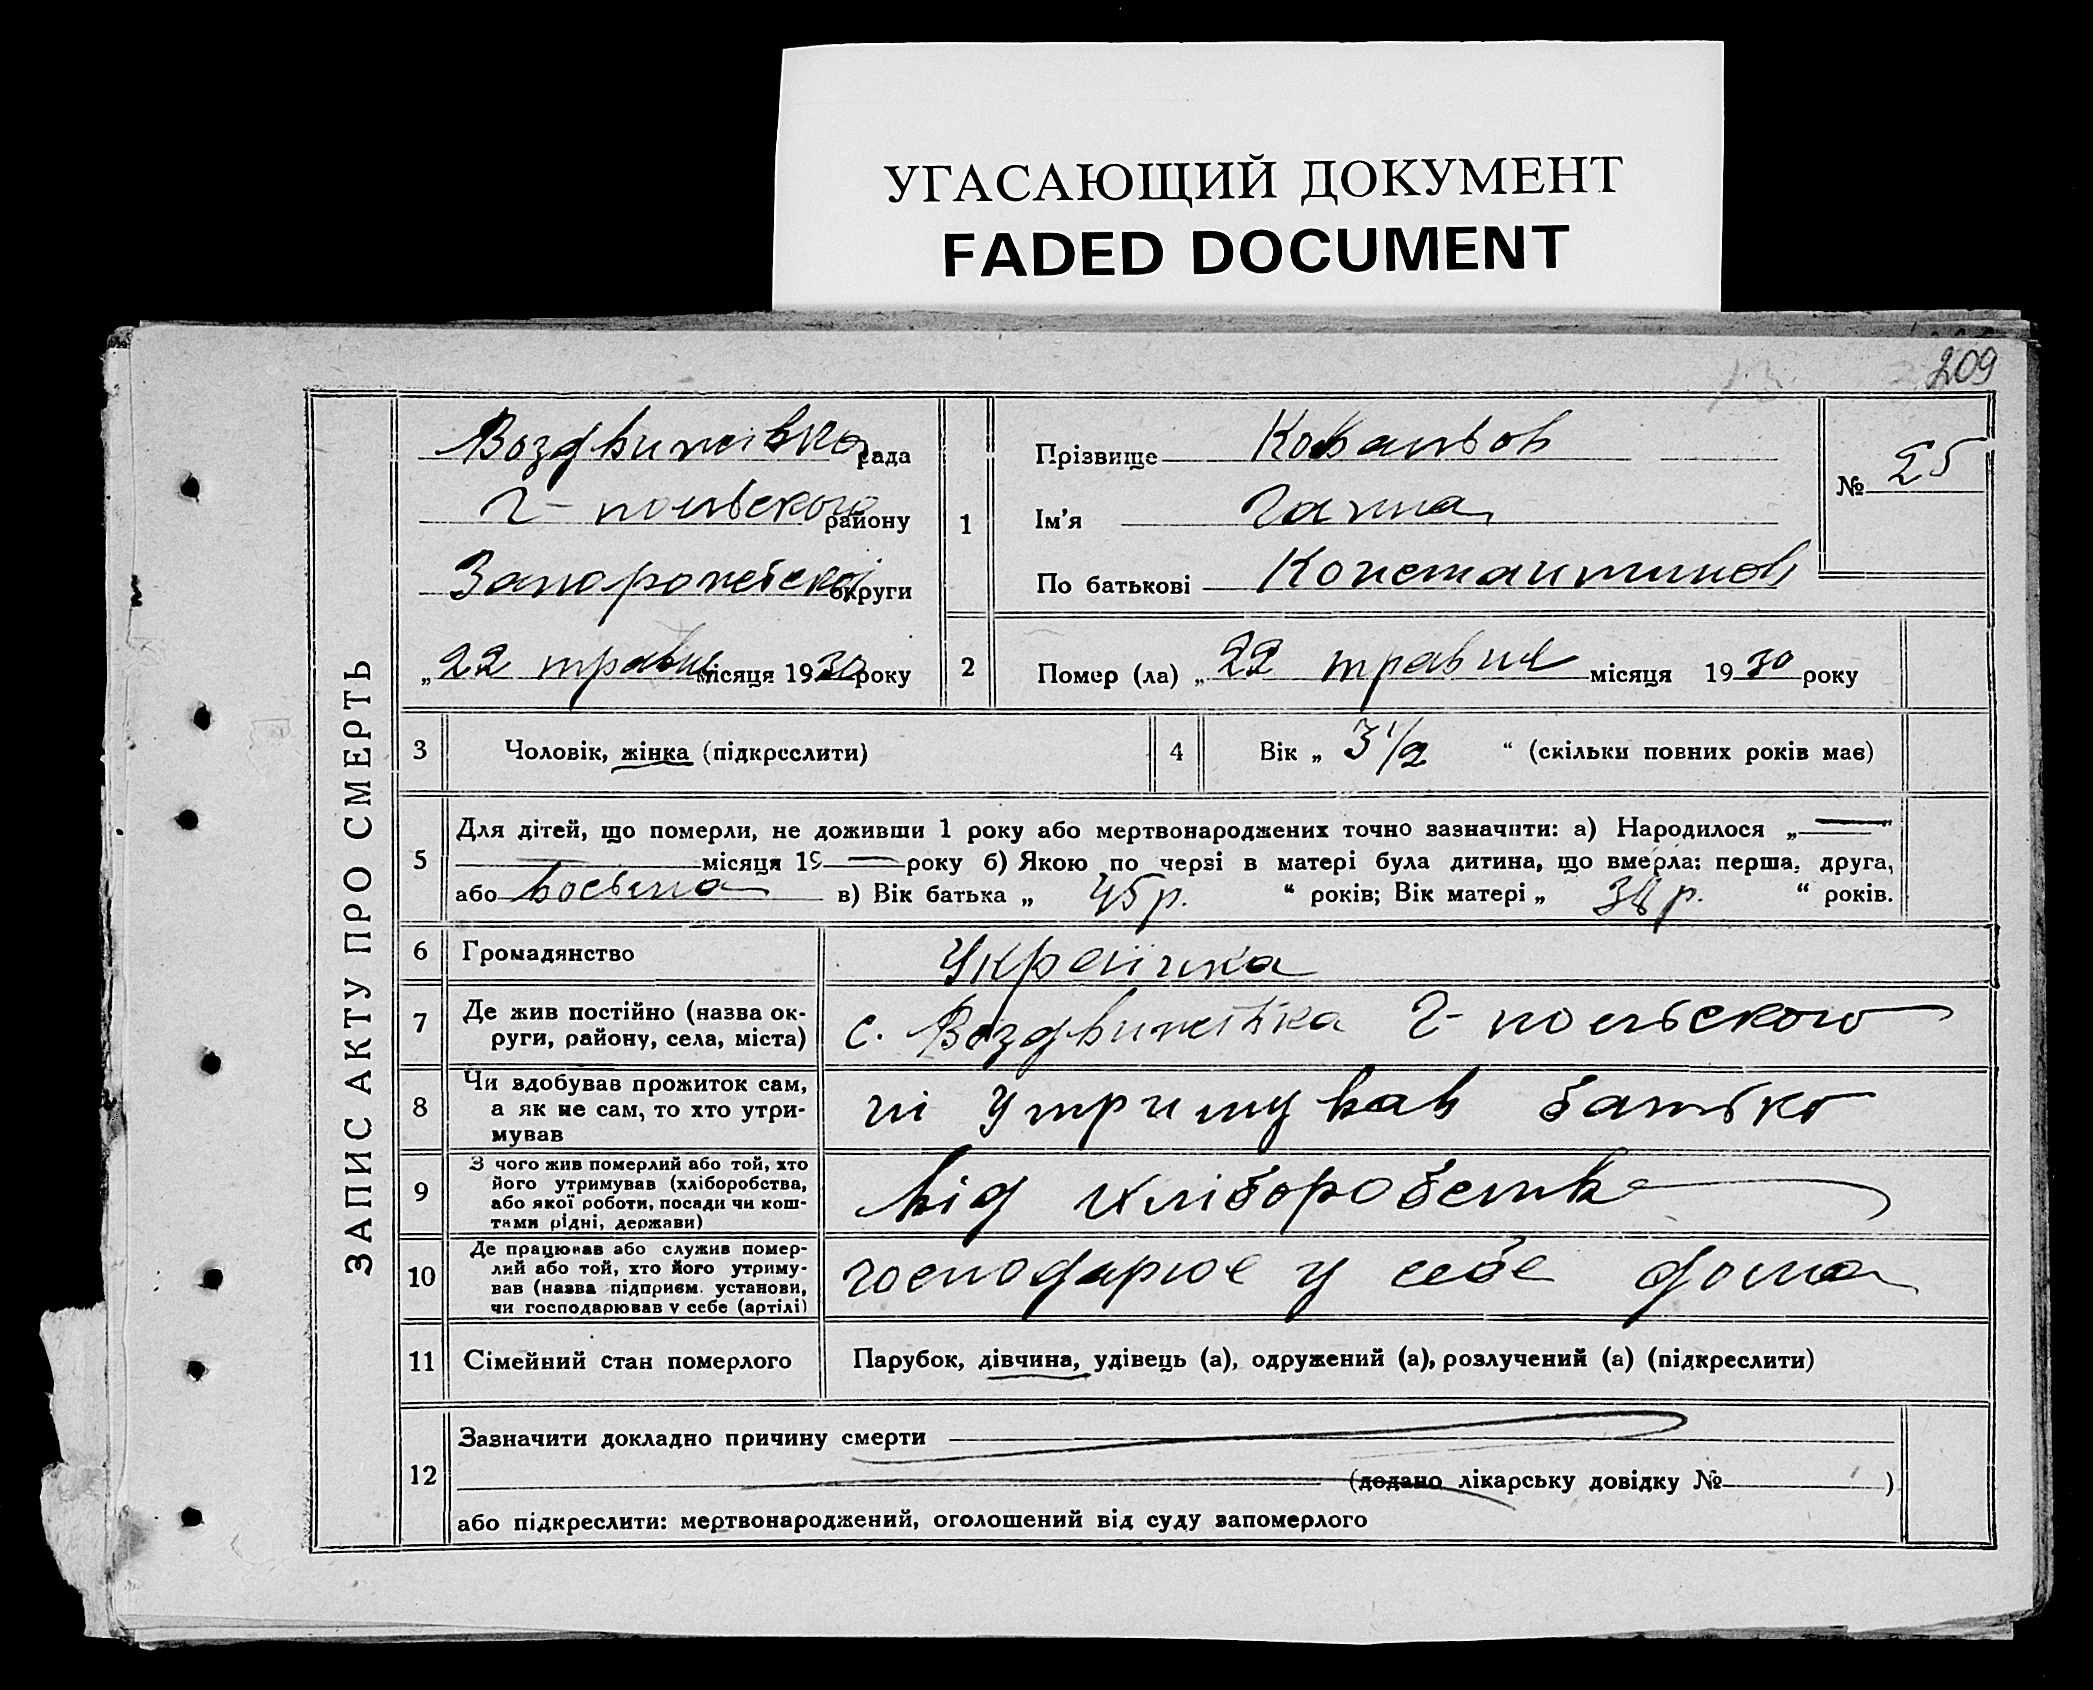 УГАСАЮЩИЙ ДОКУМЕНТ
FADED DOCUMENT
209
ЗАПИС АКТУ ПРО СМЕРТЬ
Воздвижівка рада
Г-польского району
Запорожської округи
„22 травня місяця 1930 року
1
Прізвище Ковальов
Ім'я Ганна
По батькові Константинов
№ 25
2
Помер (ла) „22 травня місяця 1930 року
3
Чоловік, жінка (підкреслити)
4
Вік „ 3 1/2 “ (скільки повних років має)
5
Для дітей, що померли, не доживши 1 року або мертвонароджених точно зазначити: а) Народилося „—“
— місяця 19 — року б) Якою по черзі в матері була дитина, що вмерла: перша, друга,
або восьма в) Вік батька „ 45 р. “ років; Вік матері „ 38 р. “ років.
6
Громадянство
Українка
7
Де жив постійно (назва ок-
руги, району, села, міста)
с. Воздвижівка Г-польского
8
Чи здобував прожиток сам,
а як не сам, то хто утри-
мував
ні утримував батько
9
З чого жив померлий або той, хто
його утримував (хліборобства,
або якої роботи, посади чи кош-
тами рідні, держави)
від хліборобства
10
Де працював або служив помер-
лий або той, хто його утриму-
вав (назва підприєм. установи,
чи господарював у себе (артілі)
господарює у себе дома
11
Сімейний стан померлого
Парубок, дівчина, удівець (а), одружений (а), розлучений (а) (підкреслити)
12
Зазначити докладно причину смерти
(додано лікарську довідку № )
або підкреслити: мертвонароджений, оголошений від суду запомерлого